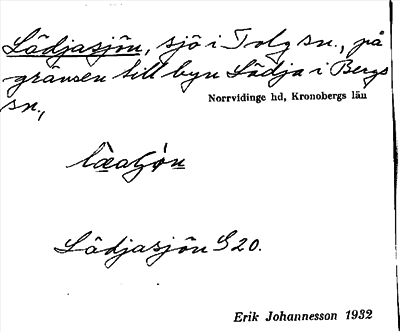 Lädjasjön, sjö i Tolg sn., på
gränsen till byn Lädja i Bergs
sn.,
Norrvidinge hd, Kronobergs län
Lädjasjön G 20.
Erik Johannesson 1932